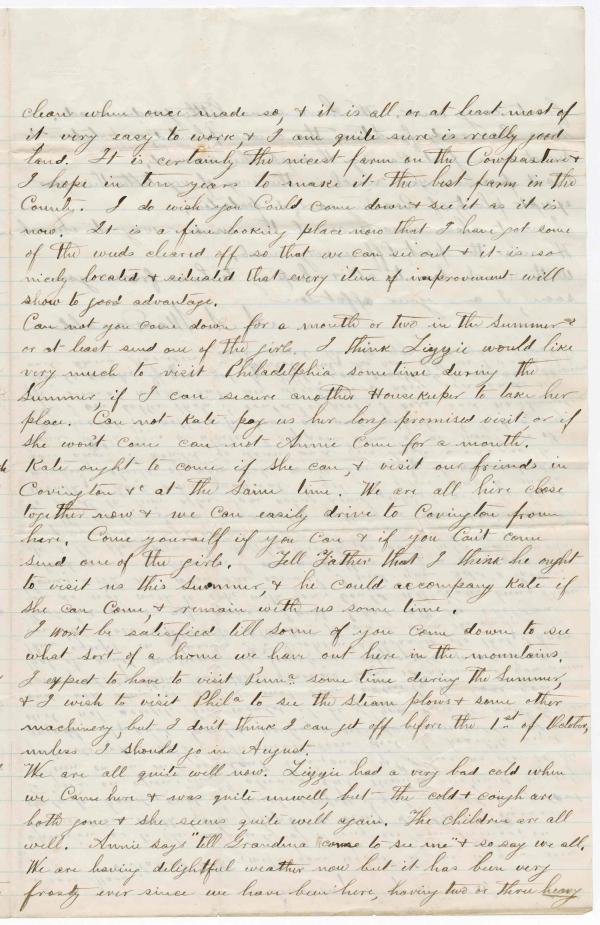 clean when once made so, & it is all or at least most of
it very easy to work, & I am quite sure is really good
land. It is certainly the nicest farm on the Cowpasture &
I hope in ten years to make it the best farm in the
County. I do wish you Could come down & see it as it is
now. It is a fine looking place now that I have got some
of the weeds cleared off so that we can see out & it is so
nicely located & situated that every item of improvement will
show to good advantage.
Can not you come down for a month or two in the Summer
or at least send one of the girls. I think Lizzie would like
very much to visit Philadelphia sometime during the
Summer, if I can secure another Housekeeper to take her
place. Can not Kate pay us her long promised visit, or if
she won't come can not Annie Come for a month.
Kate ought to come if she can, & visit our friends in
Covington &c at the same time. We are all here close
together now & we can easily drive to Covington from
here. Come yourself if you Can & if you Can't come
send one of the girls. Tell Father that I think he ought
to visit us this Summer, & he could accompany Kate if
she can Come, & remain with us some time.
I won't be satisfied till some of you come down to see
what sort of a home we have out here in the mountains.
I expect to have to visit Penna some time during the Summer,
& I wish to visit Phila to see the steam plows & some other
machinery, but I don't think I can get off before the 1st of October,
unless I should go in August.
We are all quite well now. Lizzie had a very bad cold when
we Came here & was quite unwell, but the cold & cough are
both gone & she seems quite well again. The children are all
well. Annie says "tell Grandma come to see me" & so say we all.
We are having delightful weather now but it has been very
frosty ever since we have been here, having two or three heavy